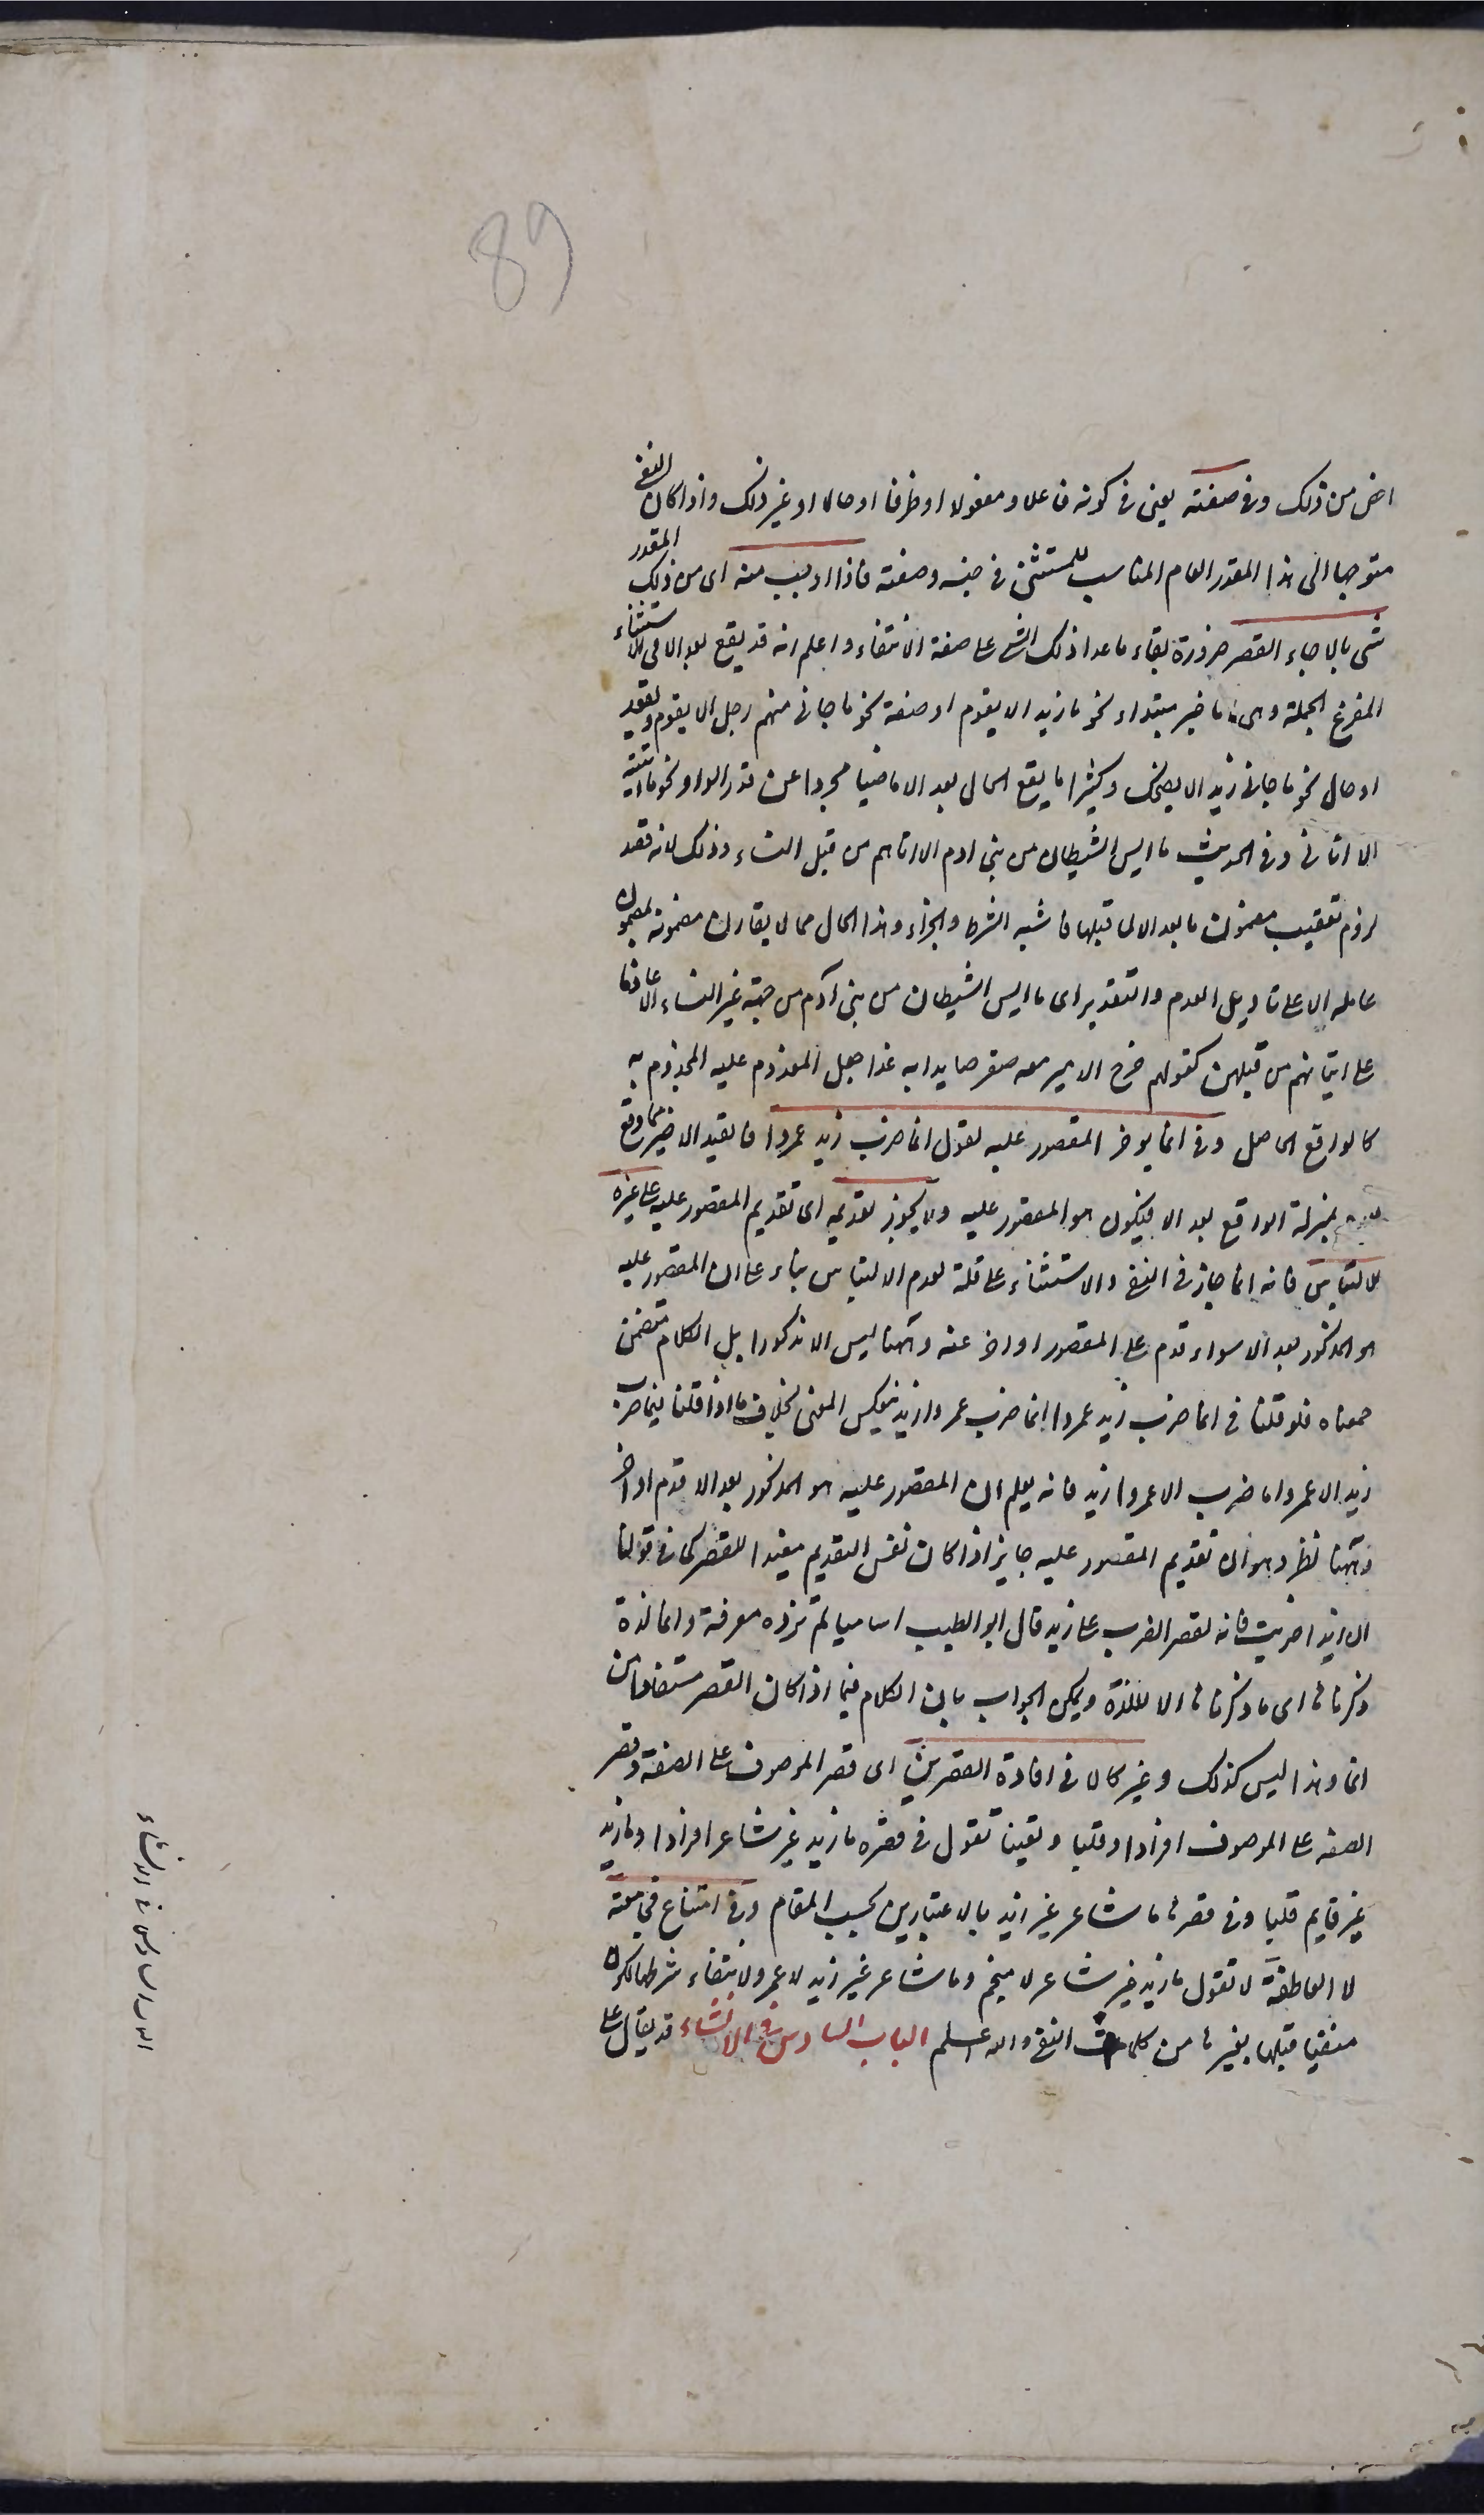 89
اخص من ذلك وفى صفته يعنى فى كونه فاعلا ومفعولا او ظرفا او حالا او غير ذلك واذا كان النفى
متوجها الى هذا المقدر العام المناسب للمستثنى فى جنسه وصفته فاذا اوجب منه اى من ذلك المقدر
شى بالا جاء القصر ضرورة بقاء ما عدا ذلك الشى على صفة الانتفاء واعلم انه قد يقع بعد الا فى الاستثناء
المفرغ الجملة وهى اما خبر مبتداء نحو ما زيد الا يقوم او صفة نحو ما جانى منهم رجل الا يقوم ويقعد
او حال نحو ما جانى زيد الا يضحك وكثيرا ما يقع الحال بعد الا ماضيا مجردا عن قد والواو نحو ما اتيته
الا اتانى وفى الحديث ما ايس الشيطان من بنى ادم الا اتاهم من قبل النساء وذلك لانه قصد
لزوم تعقيب مضمون ما بعد الا لما قبلها فاشبه الشرط والجزاء وهذا الحال مما لا يقارن مضمونه لمضمون
عامله الا على تاويل العدم والتقدير اى ما ايس الشيطان من بنى آدم من جهة غير النساء الا عازما
على اتيانهم من قبلهن كقولهم خرج الامير معه صقر صايدا به غدا جعل المعزوم عليه المجزوم به
كالواقع الحاصل وفى انما يوخر المقصور عليه تقول انما ضرب زيد عمروا فالقيد الاخير مما وقع
بمنزلة الواقع بعد الا فيكون هو المقصور عليه ولا يجوز تقديمه اى تقديم المقصور عليه على غيره
للالتباس فانه انما جاز فى النفى والاستثناء على قلة لعدم الالتباس بناء على ان المقصور عليه
هو المذكور بعد الا سواء قدم على المقصور او اخر عنه وههنا ليس الا مذكورا بل الكلام متضمن
معناه فلو قلنا فى انما ضرب زيد عمروا انما ضرب عمروا زيد ينعكس المعنى بخلاف ما اذا قلنا فيما ضرب
زيد الا عمروا ما ضرب الا عمروا زيد فانه يعلم ان المقصور عليه هو المذكور بعد الا قدم او اخر
وههنا نظر وهو ان تقديم المقصور عليه جايز اذا كان نفس التقديم مفيدا للقصر كما فى قولنا
ان زيدا ضربت فانه لقصر الضرب على زيد قال ابو الطيب اساميا لم تزده معرفة وانما لذة
ذكرناها اى ما ذكرناها الا للذة ويمكن الجواب بان الكلام فيما اذا كان القصر مستفادا من
انما وهذا ليس كذلك وغير كالا فى افادة القصرين اى قصر الموصوف على الصفة وقصر
الصفه على الموصوف افرادا وقلبا وتعيينا تقول فى قصره ما زيد غير شاعر افرادا وما زيد
غير قايم قلبا وفى قصرها ما شاعر غير زيد بالاعتبارين بحسب المقام وفى امتناع مجامعته
لا العاطفة لا تقول ما زيد غير شاعر لا منجم وما شاعر غير زيد لا عمرو لانتفاء شرطها لكون
منفيا قبلها بغيرها من كلمات النفى والله اعلم الباب السادس فى الانشاء قد يقال على
الباب السادس فى الانشاء